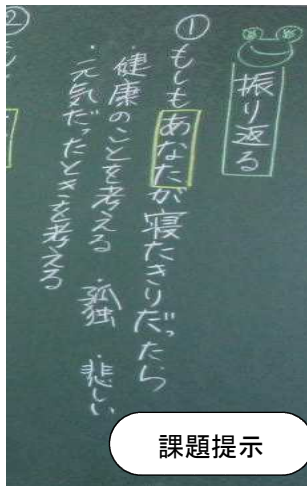 振り返る
①もしもあなたが寝たきりだったら
・健康のことを考える ・孤独 ・悲しい
・元気だったときを考える
②
課題提示